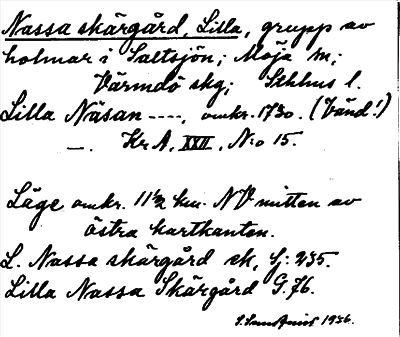 Nassa skärgård, Lilla, grupp av
holmar i Saltsjön; Möja sn;
Värmdö skg; Sthlms l.
Lilla Näsan ----, omkr. 1730. (Vänd!)
—. Kr A, XXII, N:o 15.
Läge omkr. 11 1/2 km. NV mitten av
östra kartkanten.
L. Nassa skärgård ek, f: 235.
Lilla Nassa Skärgård G. 76.
1936.